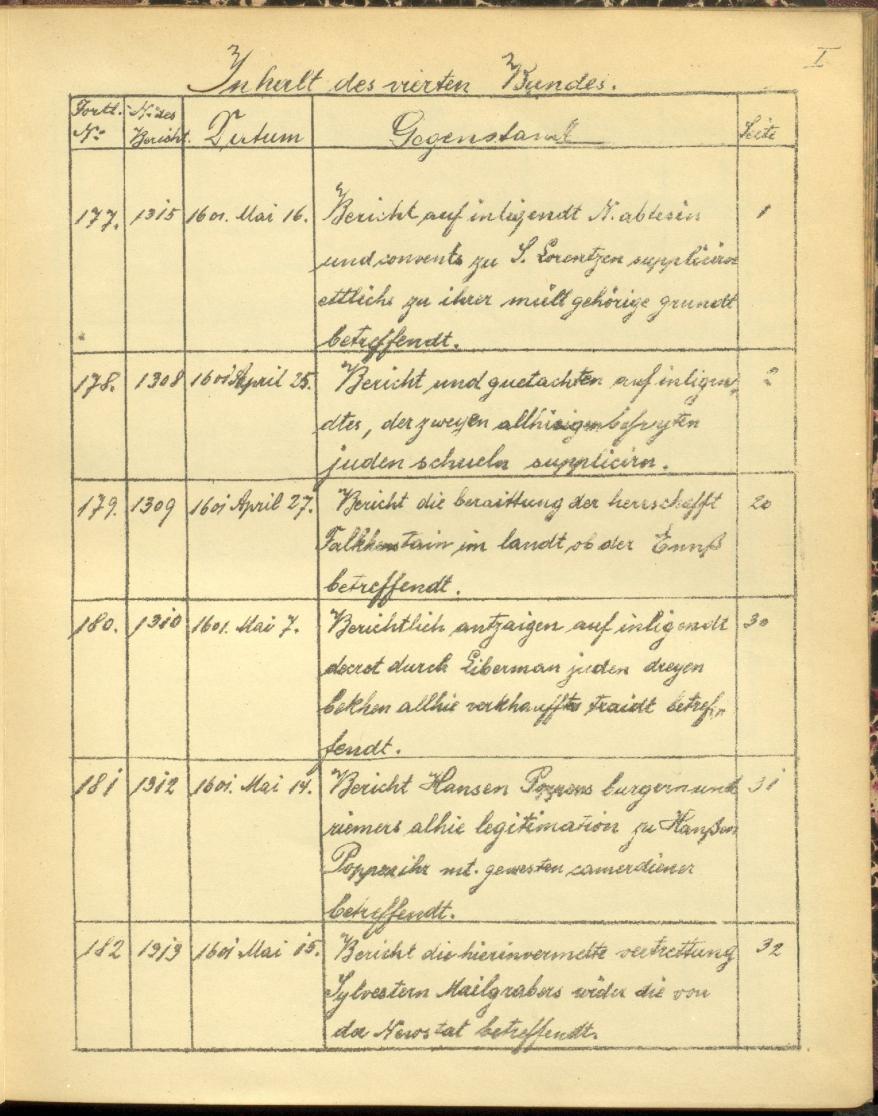 I
Inhalt des vierten Bandes.
Fortl. No. des Datum Gegenstand Seite
No. Bericht.
177. 1315 1601. Mai 16. Bericht auf inligendt N. abtesin 1
und convents zu S. Lorentzen supplicirn
ettliche zu ihrer müll gehörige grundt
betreffendt.
178. 1308 1601 April 25. Bericht und guetachten auf inligen-
dtes, der zweyen allhieigen befreyten
juden schueln supplicirn.
179. 1309 1601 April 27. Bericht die beraittung der herrschafft 20
Falkhenstain im landt ob der Ennß
betreffendt.
180. 1310 1601. Mai 7. Berichtlich antzaigen auf inligendt 30
decret durch Liberman juden dreyen
bekhen allhie verkhauffts traidt betref-
fendt.
181 1312 1601. Mai 14. Bericht Hansen burgern und 31
riemers alhie legitimation zu Hanßen
Poppen ihr mt. gewesten camerdiener
betreffendt.
182 1313 1601 Mai 15. Bericht die hierinvermelte vertrettung 32
Sylvestern Mailgrabers wider die von
der Newstat betreffendt.